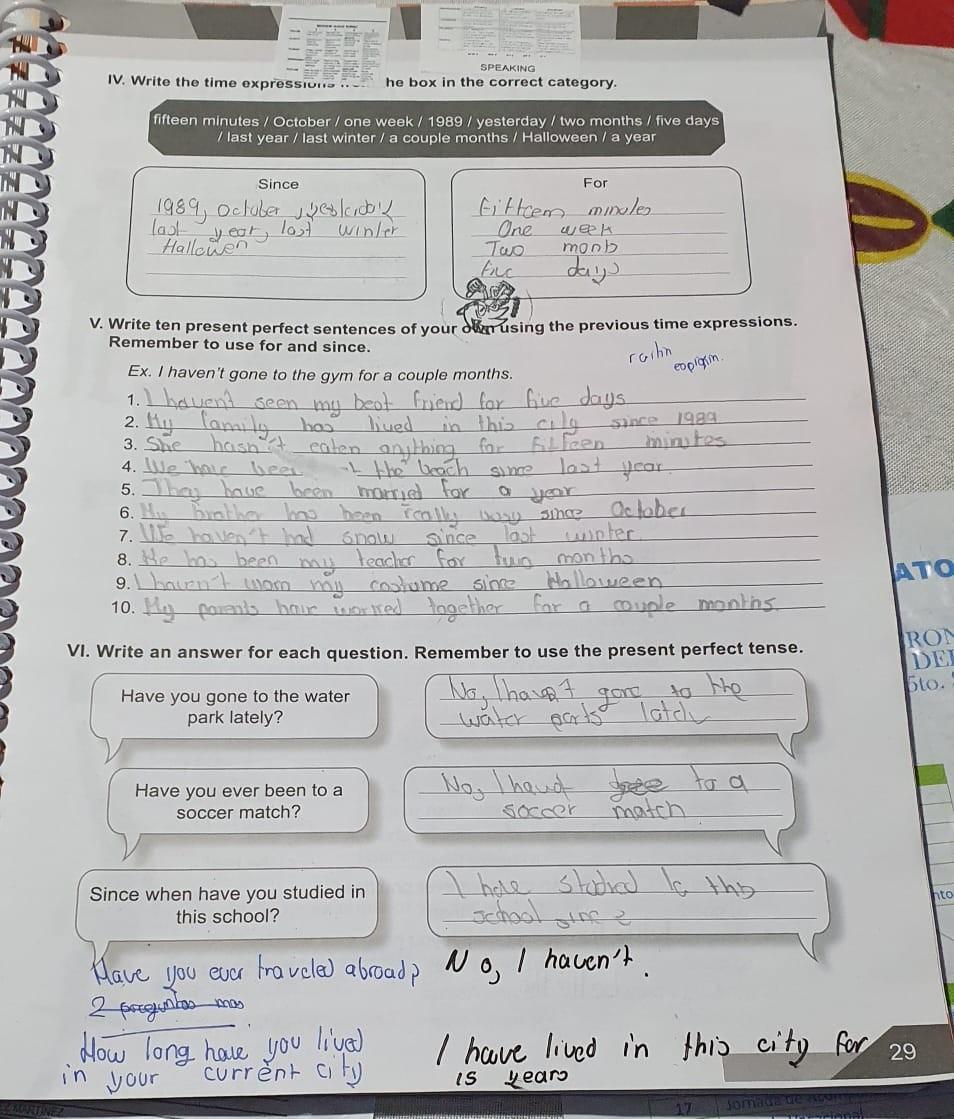 SPEAKING
IV. Write the time expressions he box in the correct category.
fifteen minutes / October / one week / 1989 / yesterday / two months / five days
/ last year / last winter / a couple months / Halloween / a year
Since
For
1989, October ,
last year, last winter
Hallowen
minutes
One week
Two
days
V. Write ten present perfect sentences of your own using the previous time expressions.
Remember to use for and since.
Ex. I haven't gone to the gym for a couple months.
1. I haven't seen my best friend for five days
2. My family has lived in this city since 1989
3. She hasn't eaten anything for fifteen minutes
4. We have been the beach since last year.
5. They have been married for a year
6. My brother has been really since October
7. We haven't had snow since last winter
8. He has been my teacher for two months
9. I haven't worn my costume since Halloween
10. My parents have worked together for a couple months.
VI. Write an answer for each question. Remember to use the present perfect tense.
Have you gone to the water
park lately?
No, I haven't gone to the
water
Have you ever been to a
soccer match?
No, I to a
soccer match
Since when have you studied in
this school?
I
school since
Have you ever traveled abroad?
No, I haven't.
2 preguntas mas
How long have you lived
in your current city
I have lived in this city for
15 years
29
ATO
5to.
17